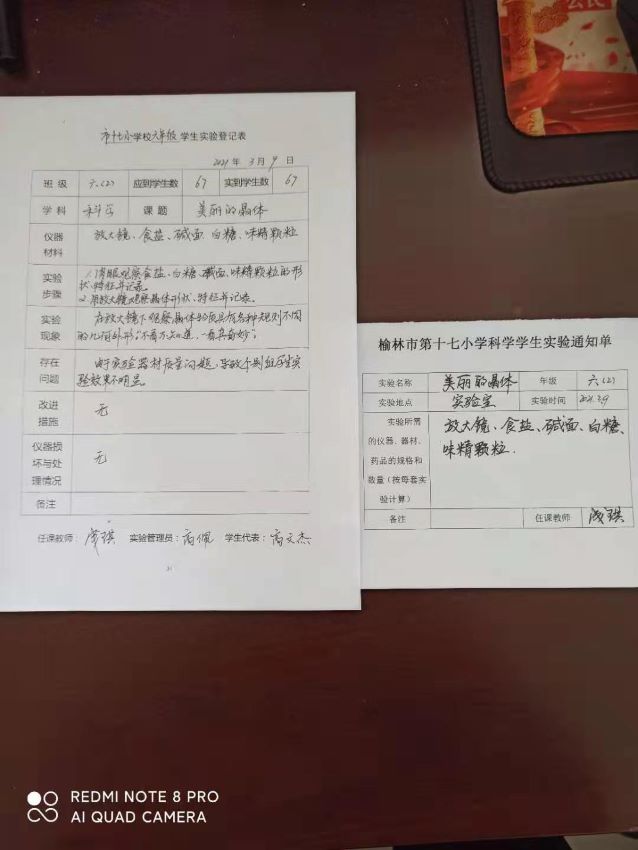 市十七小学校六年级 学生实验登记表
2021 年 3 月 9 日
班 级 六.(2) 应到学生数 67 实到学生数 67
学 科 科学 课 题 美丽的晶体
仪器材料 放大镜、食盐、碱面、白糖、味精颗粒
实验步骤 1.肉眼观察食盐、白糖、碱面、味精颗粒的形
状、特征并记录。
2.用放大镜观察晶体形状、特征并记录。
实验现象 在放大镜下观察晶体物质具有各种规则不同
的几何外形,"不看不知道,一看真奇妙"。
存在问题 由于实验器材质量问题,导致个别组学生实
验效果不明显。
改进措施 无
仪器损坏与处理情况 无
备注
任课教师: 成琪 实验管理员: 高佩 学生代表: 高文杰
榆林市第十七小学科学学生实验通知单
实验名称 美丽的晶体 年级 六(2)
实验地点 实验室 实验时间 2021.3.9
实验所需的仪器、器材、药品的规格和数量(按每套实验计算) 放大镜、食盐、碱面、白糖、
味精颗粒.
备注 任课教师 成琪
REDMI NOTE 8 PRO
AI QUAD CAMERA